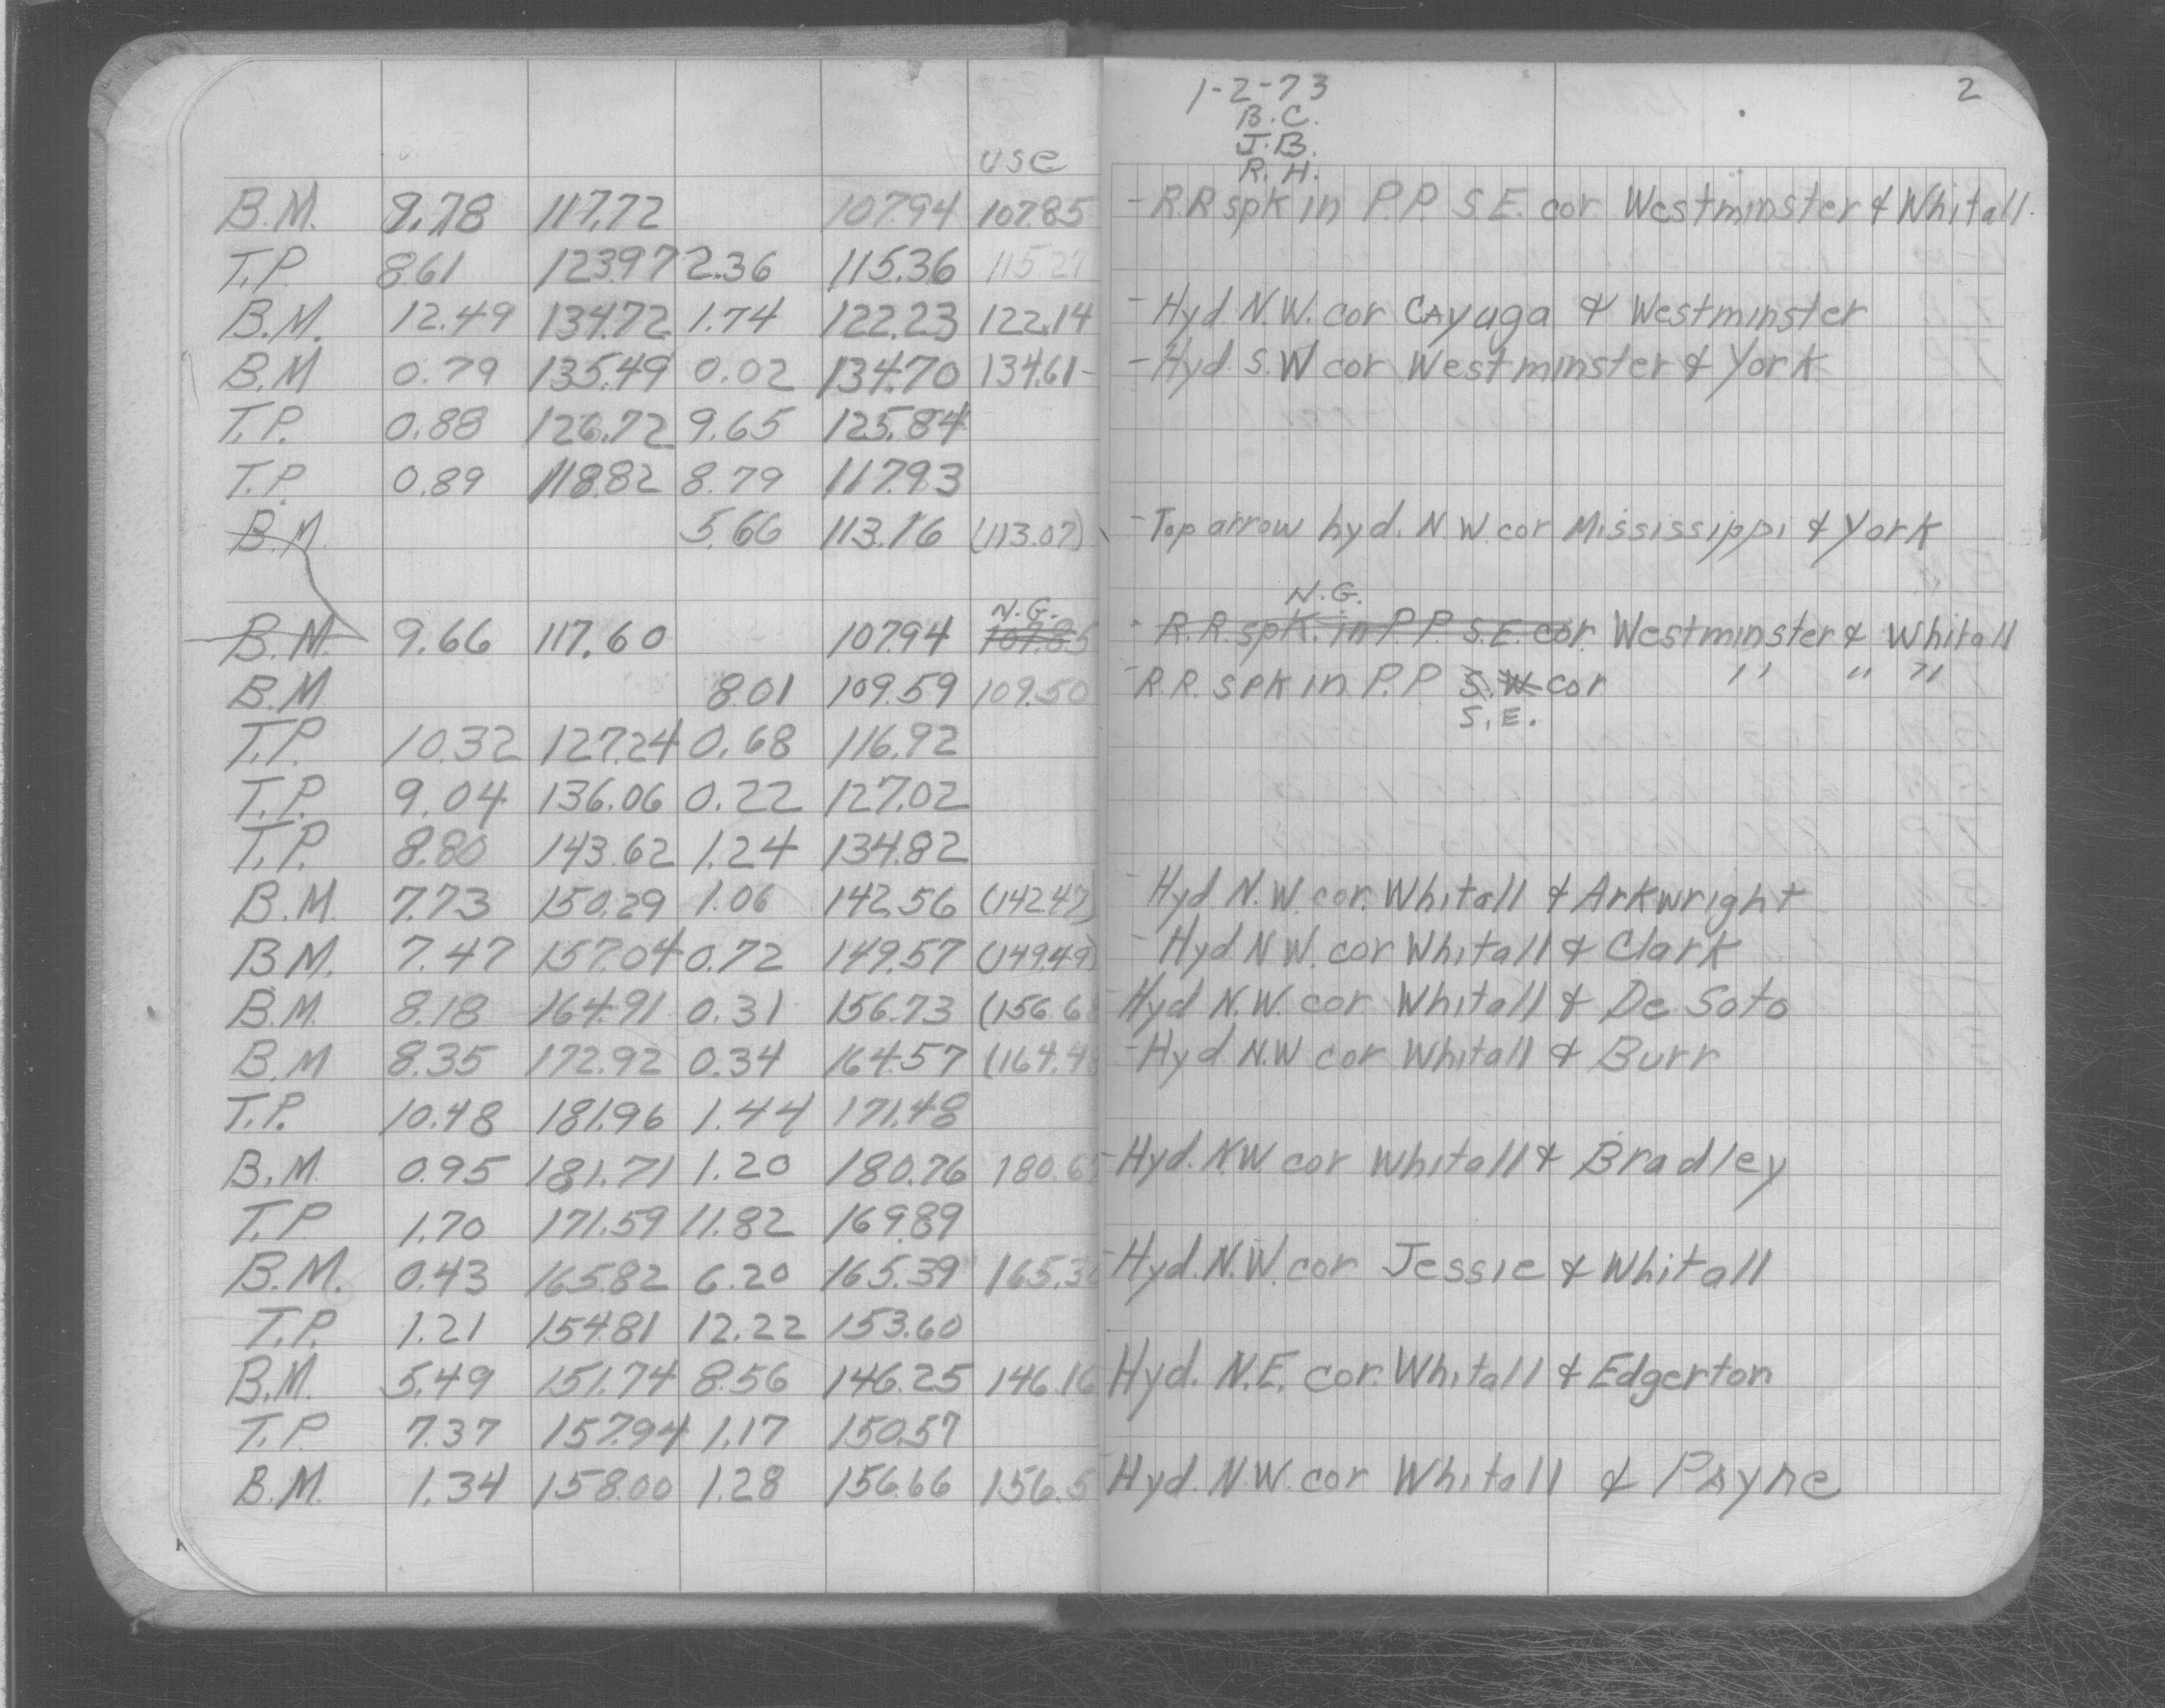 1-2-73 2
B.C.
J.B.
use R.H.
B.M. 9.78 117.72 107.94 107.85 - R.R spk in P.P. S.E. cor Westminster & Whitall.
T.P. 8.61 123.97 2.36 115.36 115.27
B.M. 12.49 134.72 1.74 122.23 122.14 - Hyd. N.W. cor Cayuga & Westminster
B.M 0.79 135.49 0.02 134.70 134.61 - - Hyd. S.W cor Westminster & York
T.P. 0.88 126.72 9.65 125.84
T.P. 0.89 118.82 8.79 117.93
B.M. 5.66 113.16 (113.07) - Top arrow hyd. N.W. cor Mississippi & York
N.G. N.G.
B.M. 9.66 117.60 107.94 107.85 - R.R. spk. in P.P. S.E. cor. Westminster & Whitall
B.M 8.01 109.59 109.50 - R.R. spk in P.P S.W cor " " "
S.E.
T.P. 10.32 127.24 0.68 116.92
T.P. 9.04 136.06 0.22 127.02
T.P. 8.80 143.62 1.24 134.82
B.M. 7.73 150.29 1.06 142.56 (142.47) - Hyd N.W. cor. Whitall & Arkwright
B.M. 7.47 157.04 0.72 149.57 (149.49) - Hyd N.W. cor Whitall & Clark
B.M. 8.18 164.91 0.31 156.73 Hyd N.W. cor Whitall & De Soto
B.M 8.35 172.92 0.34 164.57 - Hyd N.W cor Whitall & Burr
T.P. 10.48 181.96 1.44 171.48
B.M. 0.95 181.71 1.20 180.76 - Hyd. NW cor Whitall & Bradley
T.P 1.70 171.59 11.82 169.89
B.M. 0.43 165.82 6.20 165.39 - Hyd. N.W. cor Jessie & Whitall
T.P. 1.21 154.81 12.22 153.60
B.M. 5.49 151.74 8.56 146.25 146.16 Hyd. N.E. cor. Whitall & Edgerton
T.P. 7.37 157.94 1.17 150.57
B.M. 1.34 158.00 1.28 156.66 156.5 - Hyd. N.W. cor Whitall & Payne